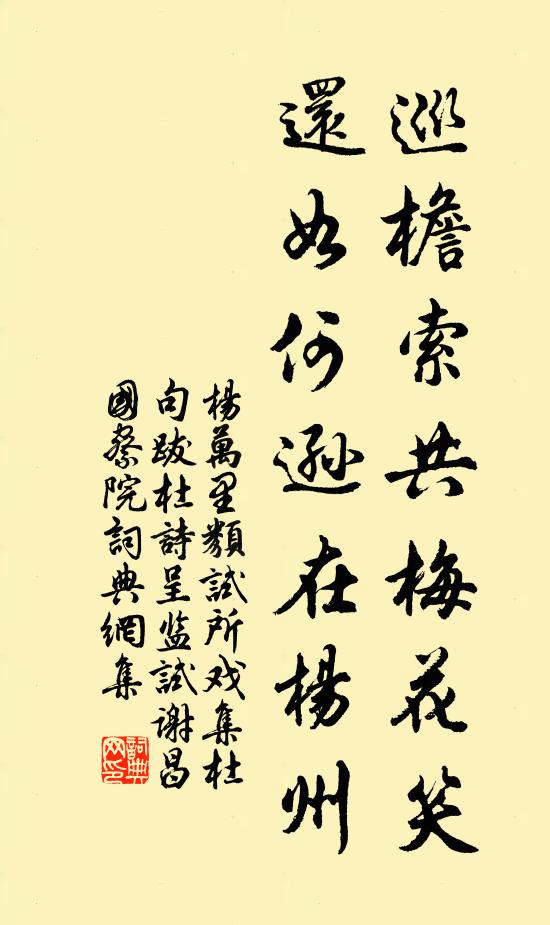 巡檐索共梅花笑
還如何遜在楊州
楊萬里類試所戏集杜
句跋杜詩呈监試谢昌
國察院詞典網集
詞典网印